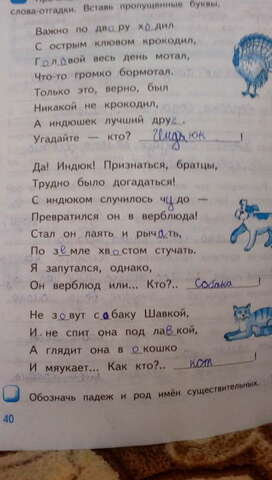 слова-отгадки. Вставь пропущенные буквы.
Важно по двору ходил
С острым клювом крокодил,
Головой весь день мотал,
Что-то громко бормотал.
Только это, верно, был
Никакой не крокодил,
А индюшек лучший друг.
Угадайте — кто? Индюк !
Да! Индюк! Признаться, братцы,
Трудно было догадаться!
С индюком случилось чудо —
Превратился он в верблюда!
Стал он лаять и рычать,
По земле хвостом стучать.
Я запутался, однако,
Он верблюд или... Кто?.. Собака !
Не зовут собаку Шавкой,
И не спит она под лавкой,
А глядит она в окошко
И мяукает... Как кто?.. кот !
Обозначь падеж и род имён существительных.
40